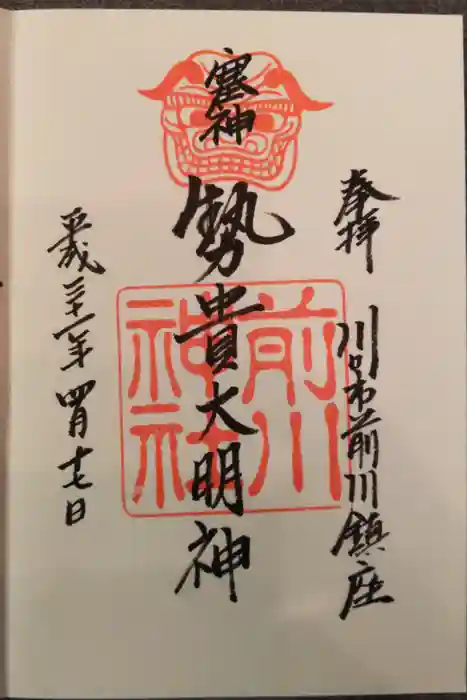 奉拝
川口市前川鎮座
塞神
勢貴大明神
前川
神社
平成三十一年四月十七日